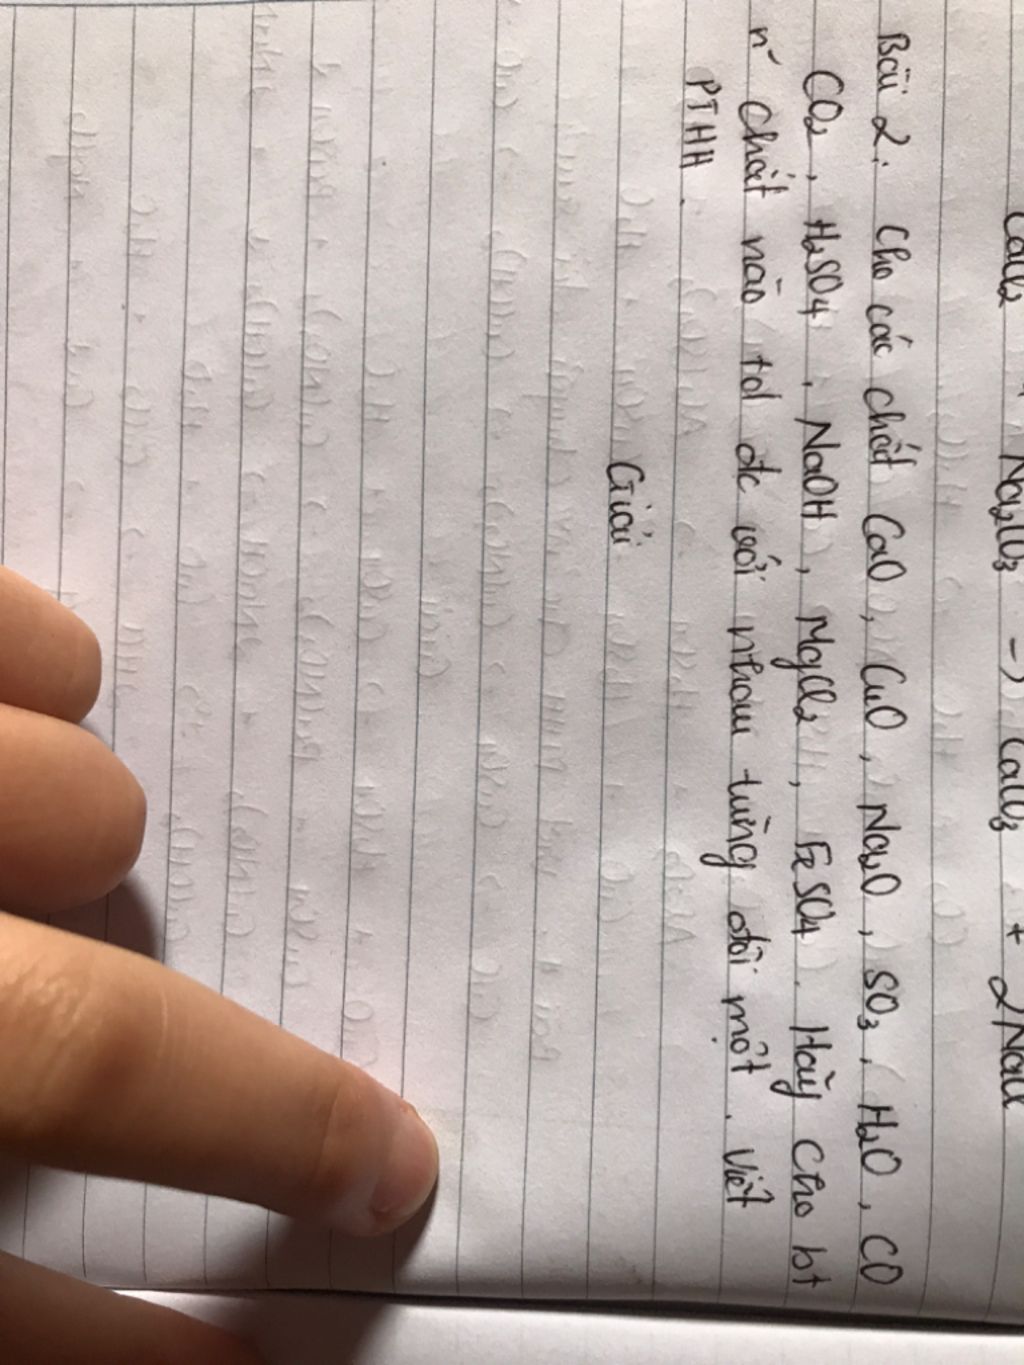 CaCl2 + Na2CO3 -> CaCO3 + 2NaCl
Bài 2: Cho các chất CaO, CuO, Na2O, SO3, H2O, CO
CO2, H2SO4, NaOH, MgCl2, FeSO4. Hãy cho bt
n~ chất nào td đc với nhau từng đôi một. Viết
PTHH.
Giải